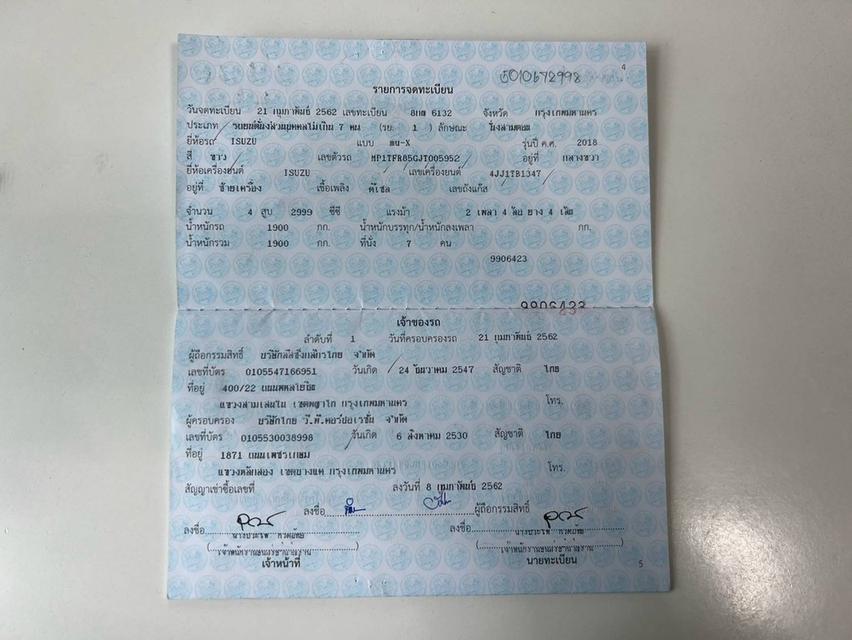 4
5010672998
รายการจดทะเบียน
วันจดทะเบียน 21 กุมภาพันธ์ 2562 เลขทะเบียน 8กต 6132 จังหวัด กรุงเทพมหานคร
ประเภท รถยนต์นั่งส่วนบุคคลไม่เกิน 7 คน (รย. 1 ) ลักษณะ นั่งสามตอน
ยี่ห้อรถ ISUZU แบบ mu-X รุ่นปี ค.ศ. 2018
สี ขาว เลขตัวรถ MP1TFR85GJT005952 อยู่ที่ กลางขวา
ยี่ห้อเครื่องยนต์ ISUZU เลขเครื่องยนต์ 4JJ1TB1347
อยู่ที่ ซ้ายเครื่อง เชื้อเพลิง ดีเซล เลขถังแก๊ส
จำนวน 4 สูบ 2999 ซีซี แรงม้า 2 เพลา 4 ล้อ ยาง 4 เส้น
น้ำหนักรถ 1900 กก. น้ำหนักบรรทุก/น้ำหนักลงเพลา กก.
น้ำหนักรวม 1900 กก. ที่นั่ง 7 คน
9906423
เจ้าของรถ
ลำดับที่ 1 วันที่ครอบครองรถ 21 กุมภาพันธ์ 2562
ผู้ถือกรรมสิทธิ์ บริษัทลีสซิ่งกสิกรไทย จำกัด
เลขที่บัตร 0105547166951 วันเกิด 24 ธันวาคม 2547 สัญชาติ ไทย
ที่อยู่ 400/22 ถนนพหลโยธิน
แขวงสามเสนใน เขตพญาไท กรุงเทพมหานคร โทร.
ผู้ครอบครอง บริษัทไทย วี.พี.คอร์ปอเรชั่น จำกัด
เลขที่บัตร 0105530038998 วันเกิด 6 สิงหาคม 2530 สัญชาติ ไทย
ที่อยู่ 1871 ถนนเพชรเกษม
แขวงหลักสอง เขตบางแค กรุงเทพมหานคร โทร.
สัญญาเช่าซื้อเลขที่ ลงวันที่ 8 กุมภาพันธ์ 2562
ลงชื่อ ผู้ถือกรรมสิทธิ์
ลงชื่อ ลงชื่อ
เจ้าหน้าที่ นายทะเบียน
5